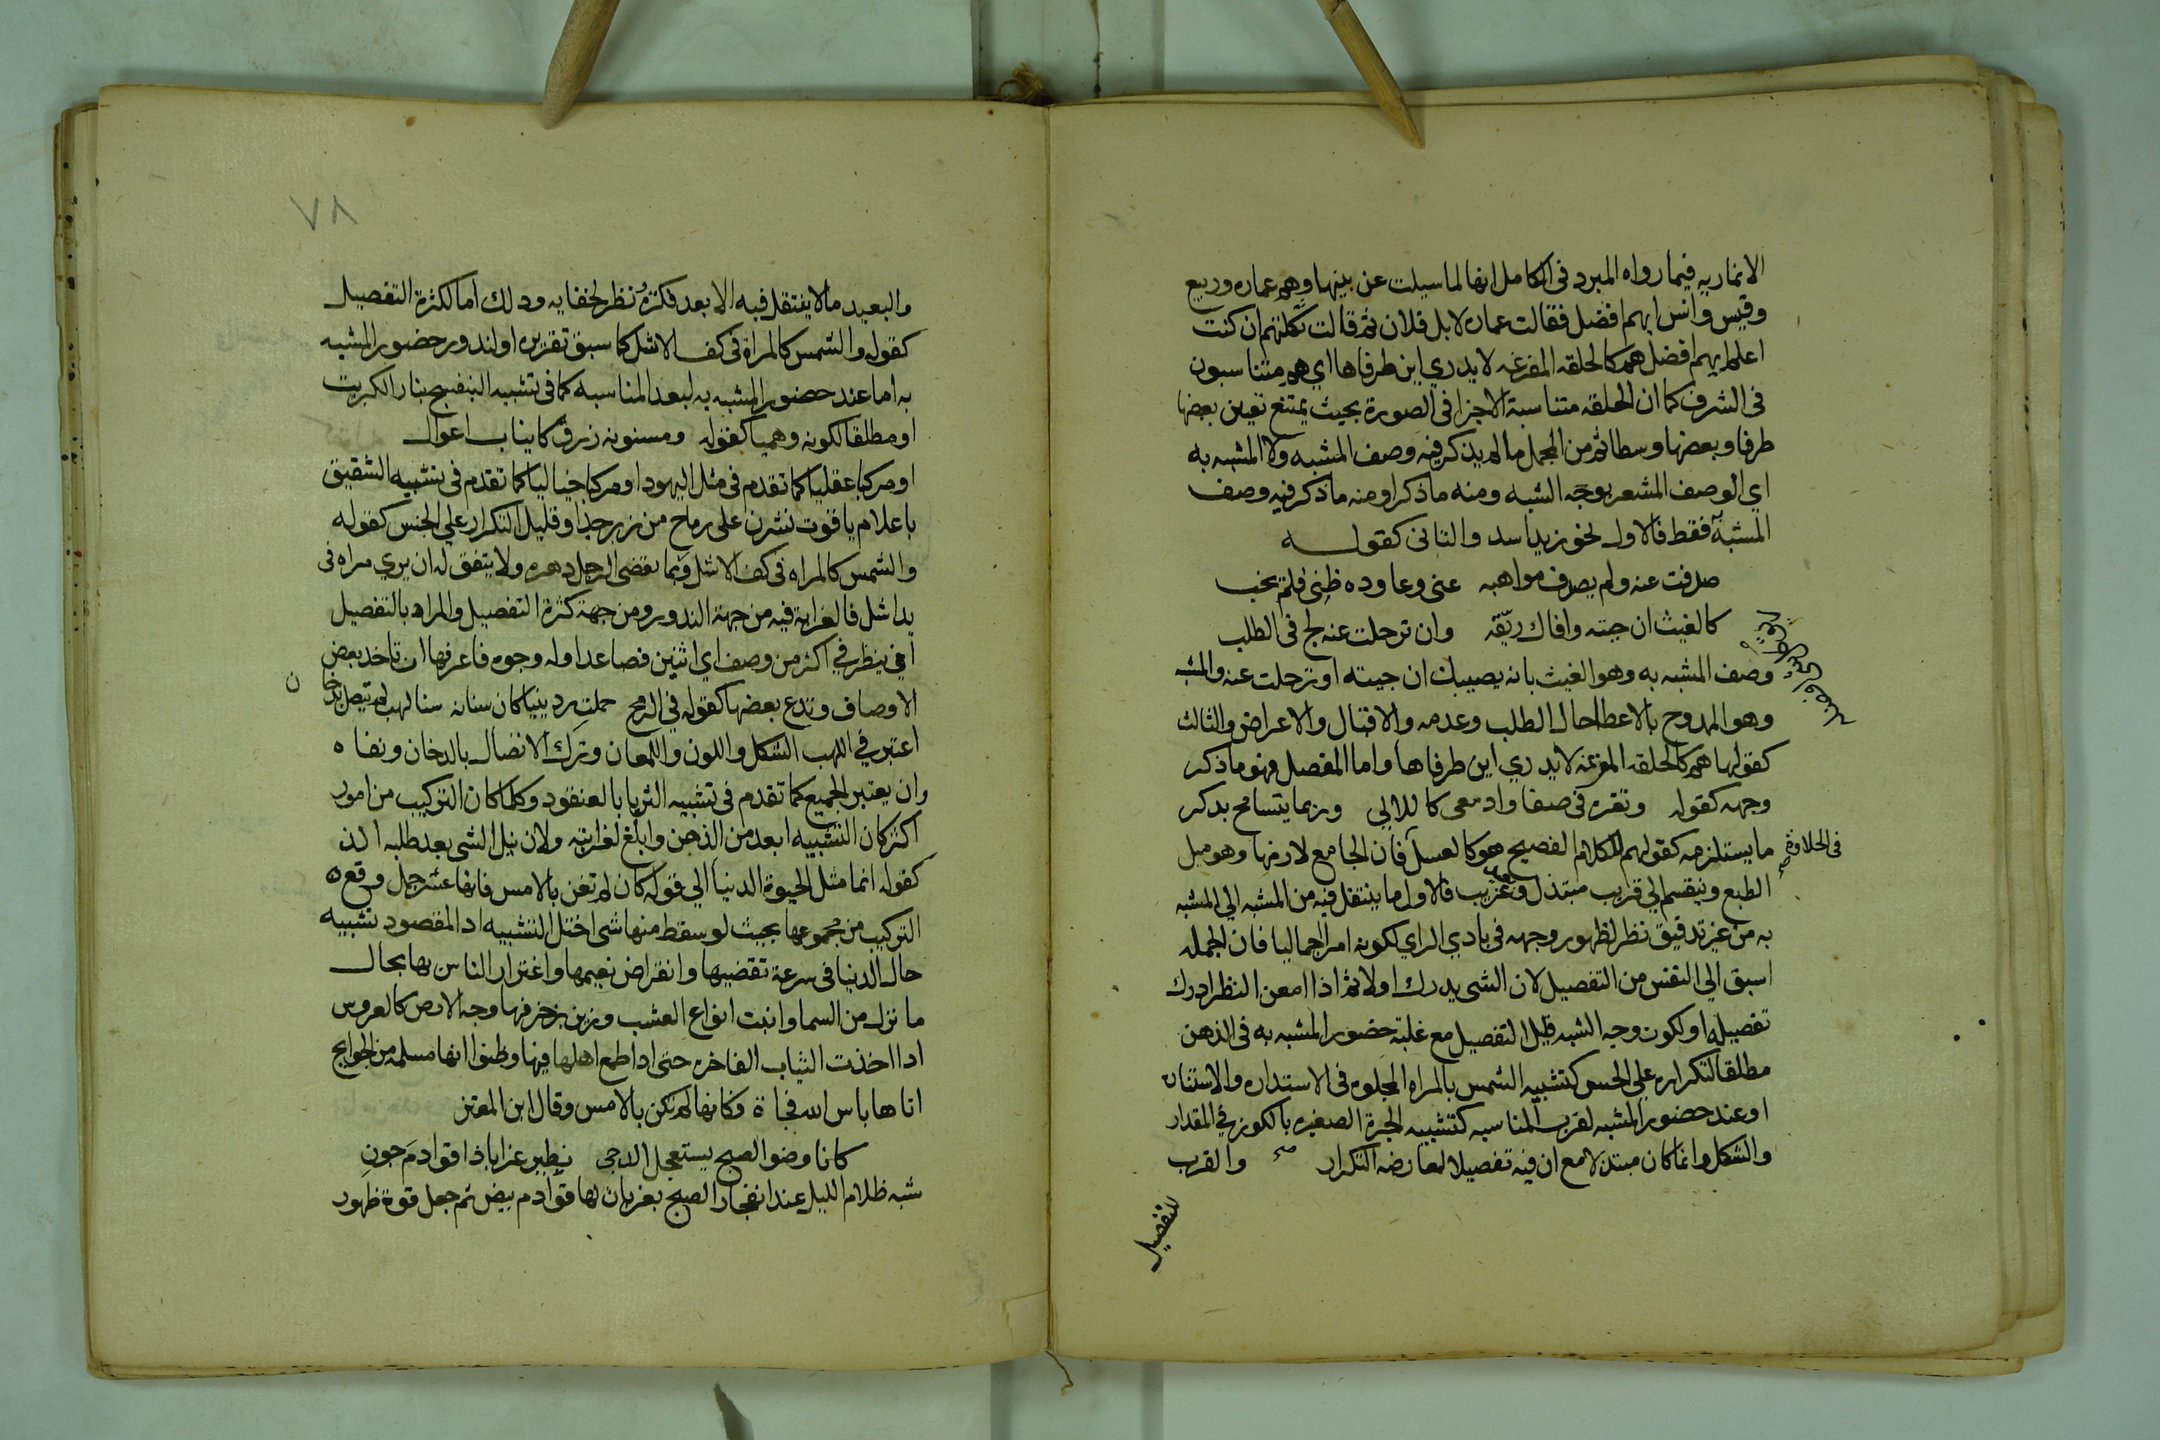 الانماريه فيما رواه المبرد فى الكامل انها لما سيلت عن بنيها وهم عماره وربيع
وقيس وانس ايهم افضل فقالت عماره لا بل فلان ثم قالت ثكلتهم ان كنت
اعلم ايهم افضل هم كالحلقه المفرغه لا يدري اين طرفاها اي هم متناسبون
فى الشرف كما ان الحلقه متناسبة الاجزا فى الصورة بحيث يمتنع تعيين بعضها
طرفا وبعضها وسطا ثم من المجمل ما لم يذكر فيه وصف المشبه ولا المشبه به
اي الوصف المشعر بوجه الشبه ومنه ما ذكر اومنه ما ذكر فيه وصف
المشبه فقط فالاول نحو زيد اسد والثانى كقوله
صدفت عنه ولم يصدف مواهبه عنى وعاوده ظنى فلم يخب
كالغيث ان جيته وافاك ريّقه وان ترحلت عنه لج فى الطلب
وصف المشبه به وهو الغيث بانه يصيبك ان جيته او ترحلت عنه والمشبه
وهو الممدوح بالاعطا حال الطلب وعدمه والاقبال والاعراض والثالث
كقولها هم كالحلقه المفرغه لا يدري اين طرفاها واما المفصل فهو ما ذكر
وجهه كقوله وثغره فى صفا وادمعى كاللالي وربما يتسامح بذكر
ما يستلزمه كقولهم الكلام الفصيح هو كالعسل فان الجامع لازمها وهو ميل
فى الحلاوة صح
الطبع وينقسم الي قريب مبتذل وغريب فالاول ما ينتقل فيه من المشبه الي المشبه
به من غير تدقيق نظر لظهور وجهه فى بادي الراي لكونه امرا جماليا فان الجمله
اسبق الي النفس من التفصيل لان الشى يدرك اولا ثم اذا امعن النظر ادرك
تفصيله او لكون وجه الشبه قليل التفصيل مع غلبة حضور المشبه به فى الذهن
مطلقا لتكراره على الحس كتشبيه الشمس بالمراه المجلوه فى الاستداره والاستناره
او عند حضور المشبه لقرب المناسبه كتشبيه الجرة الصغيره بالكوز فى المقدار
والشكل وانما كان مبتذلا مع ان فيه تفصيلا لمعارضه التكرار صح والقرب
للتفصيل
٧٨
والبعيد ما لا ينتقل فيه الا بعد فكرة ونظر لخفايه وذلك اما لكثرة التفصيل
كقوله والشمس كالمراة فى كف الاشل كما سبق تقريره او لندور حضور المشبه
به اما عند حضور المشبه به لبعد المناسبه كما فى تشبيه البنفسج بنار الكبريت
او مطلقا لكونه وهميا كقوله ومسنونه زرق كانياب اغوال
او مركبا عقليا كما تقدم فى مثل اليهود او مركبا خياليا كما تقدم فى تشبيه الشقيق
باعلام ياقوت نشرن على رماح من زبرجد او قليل التكرار علي الحس كقوله
والشمس كالمراه فى كف الاشل وبما يقضى الرجل دهره ولا يتفق له ان يري مراه فى
يد اشل فالغرابه فيه من جهة الندور ومن جهة كثرة التفصيل والمراد بالتفصيل
ان ينظر في اكثر من وصف اي اثنين فصاعدا وله وجوه فاعرفها ان تاخذ بعض
الاوصاف وتدع بعضها كقوله في الرمح حملت ردينيا كان سنانه سنا لهب لم يتصل بدخان
اعتبر في اللهب الشكل واللون واللمعان وترك الاتصال بالدخان ونفاه
وان يعتبر الجميع كما تقدم فى تشبيه الثريا بالعنقود وكلما كان التركيب من امور
اكثر كان التشبيه ابعد من الذهن وابلغ لغرابته ولان نيل الشى بعد طلبه الذ
كقوله انما مثل الحيوة الدنيا الي قوله كان لم تغن بالامس فانها عشر جمل وقع
التركيب من مجموعها بحيث لو سقط منها شى اختل التشبيه اذ المقصود تشبيه
حال الدنيا فى سرعة تقضيها وانقراض نعيمها واغترار الناس بها بحال
ما نزل من السما وانبت انواع العشب وزين بزخرفها وجه الارض كالعروس
اذا اخذت الثياب الفاخره حتى اذا طمع اهلها فيها وظنوا انها مسلمه من الجوايح
اتاها باس الله فجاة وكانها لم تكن بالامس وقال ابن المعتز
كانا وضو الصبح يستعجل الدجى نطير غرابا ذا قوادم جون
شبه ظلام الليل عند انفجار الصبح بغربان لها قوادم بيض ثم جعل قوة ظهور